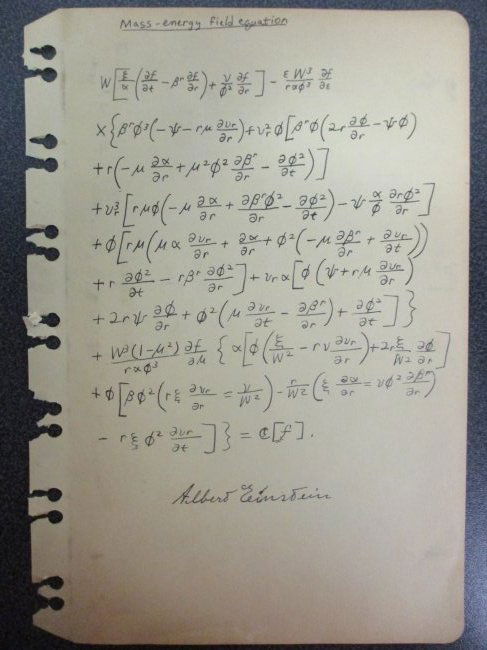 Mass-energy field equation
W[ξ/α(∂f/∂t − βʳ ∂f/∂r) + ν/φ² ∂f/∂r] − εW³/rαφ³ ∂f/∂ε
×{βʳφ³(−ψ − rμ ∂vr/∂r) + vr²φ[βʳφ(2r ∂φ/∂r − ψφ)
+ r(−μ ∂α/∂r + μ²φ² ∂βʳ/∂r − ∂φ²/∂t)]
+ vr³[rμφ(−μ ∂α/∂r + ∂βʳφ²/∂r − ∂φ²/∂t) − ψ α/φ ∂rφ²/∂r]
+ φ[rμ(μα ∂vr/∂r + ∂α/∂r + φ²(−μ ∂βʳ/∂r + ∂vr/∂t))
+ r ∂φ²/∂t − rβʳ ∂φ²/∂r] + vrα[φ(ψ + rμ ∂vr/∂r)
+ 2rψ ∂φ/∂r + φ²(μ ∂vr/∂t − ∂βʳ/∂r) + ∂φ²/∂t]}
+ W³(1−μ²)/rαφ³ ∂f/∂μ {α[φ(ξ/W² − rν ∂vr/∂r) + 2r ξ/W² ∂φ/∂r]
+ φ[βφ²(rξ ∂vr/∂r = ν/W²) − r/W²(ξ ∂α/∂r = νφ² ∂βʳ/∂r)
− rξφ² ∂vr/∂t]} = C[f].
Albert Einstein